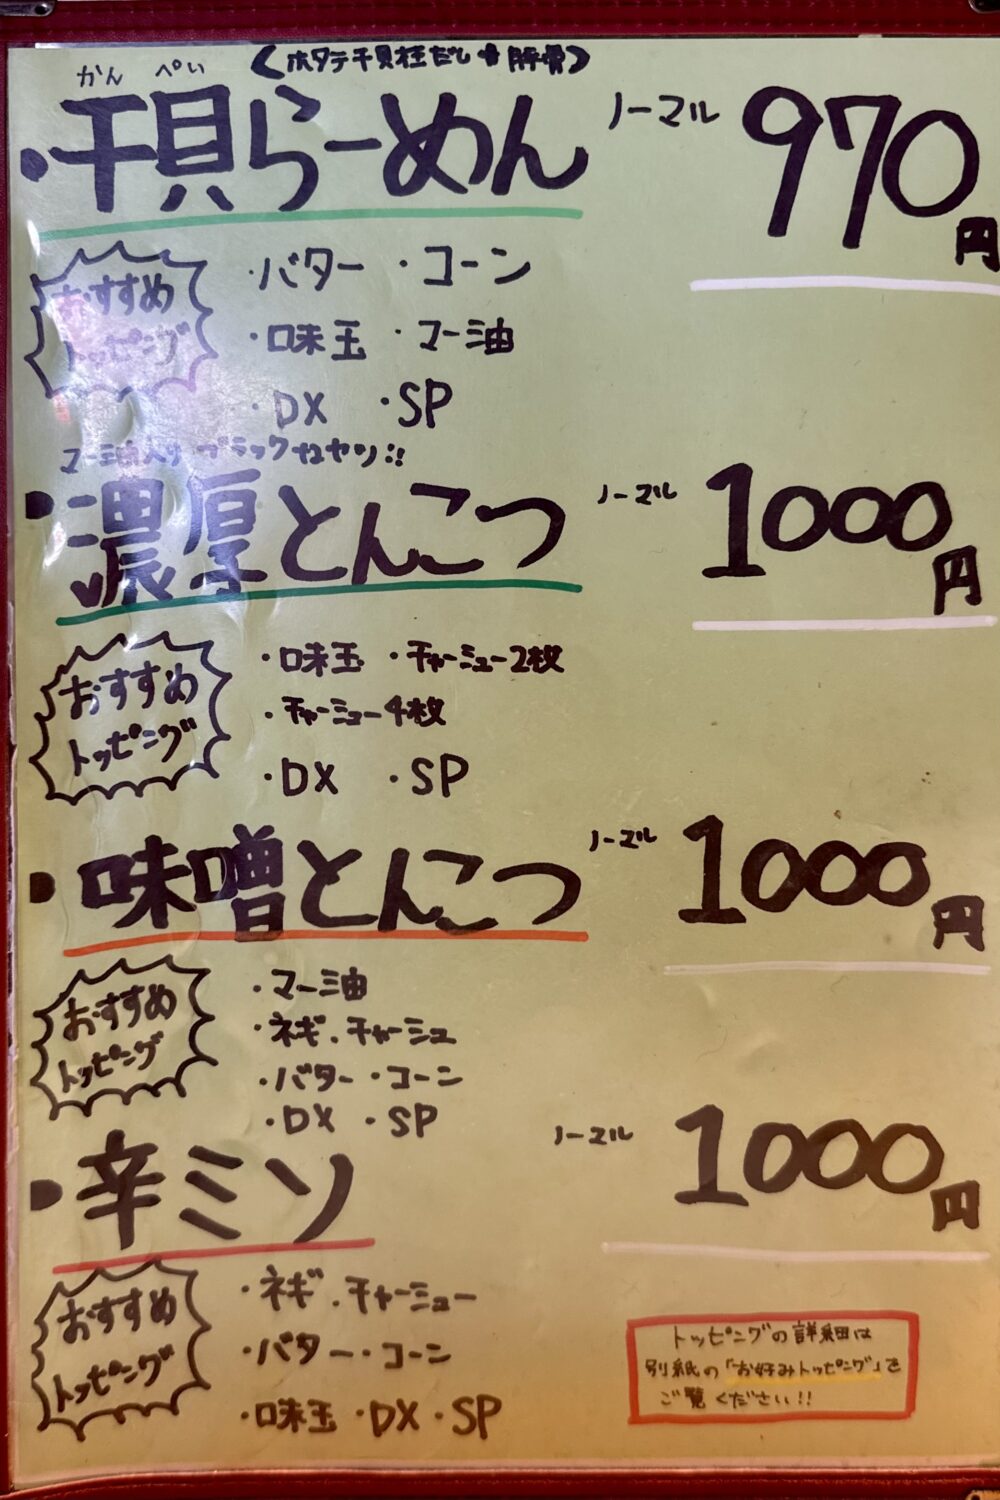 かんぺい
(ホタテ干貝柱だし+豚骨)
・干貝らーめん ノーマル 970円
おすすめ
トッピング
・バター ・コーン
・味玉 ・マー油
・DX ・SP
マー油入り ブラックなヤツ!!
・濃厚とんこつ ノーマル 1000円
おすすめ
トッピング
・味玉 ・チャーシュー2枚
・チャーシュー4枚
・DX ・SP
・味噌とんこつ ノーマル 1000円
おすすめ
トッピング
・マー油
・ネギ・チャーシュー
・バター・コーン
・DX ・SP
・辛ミソ ノーマル 1000円
おすすめ
トッピング
・ネギ・チャーシュー
・バター・コーン
・味玉 ・DX ・SP
トッピングの詳細は
別紙の「お好みトッピング」を
ご覧ください!!